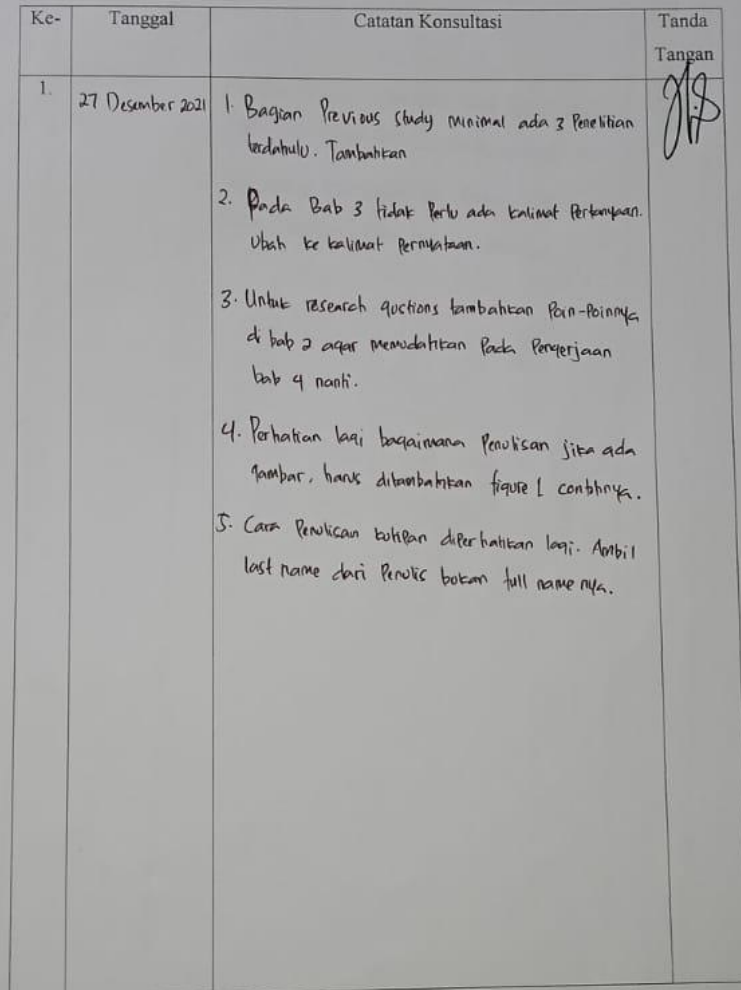 Ke- Tanggal Catatan Konsultasi Tanda
Tangan
1. 27 Desember 2021 1. Bagian Previous study minimal ada 3 Penelitian
terdahulu. Tambahkan
2. Pada Bab 3 tidak Perlu ada kalimat Pertanyaan.
Ubah ke kalimat Pernyataan.
3. Untuk research quctions tambahkan Poin-Poinnya
di bab 2 agar memudahkan Pada Pengerjaan
bab 4 nanti.
4. Perhatian lagi bagaimana Penulisan jika ada
gambar, harus ditambahkan figure 1 contohnya.
5. Cara Penulisan kutipan diperhatikan lagi. Ambil
last name dari Penulis bukan full name nya.